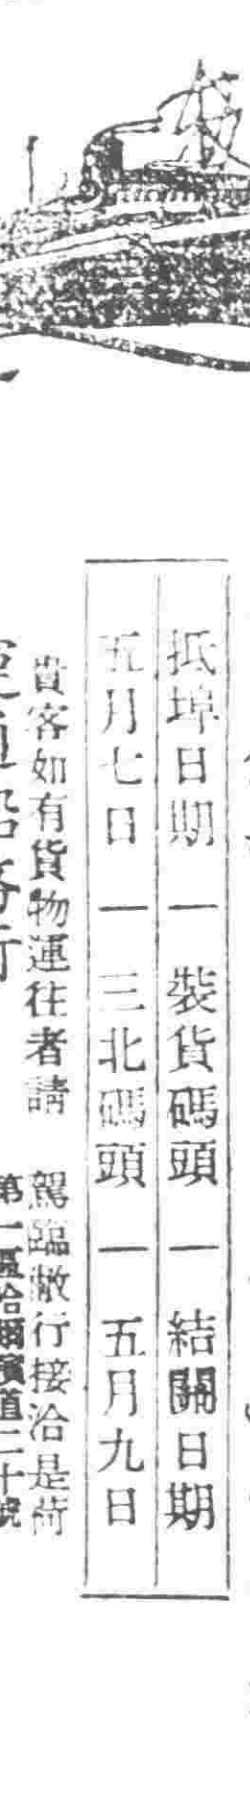 抵埠日期 — 裝貨碼頭 — 結關日期
五月七日 — 三北碼頭 — 五月九日
貴客如有貨物運往者請 駕臨敝行接洽是荷
第一區哈爾濱道二十號